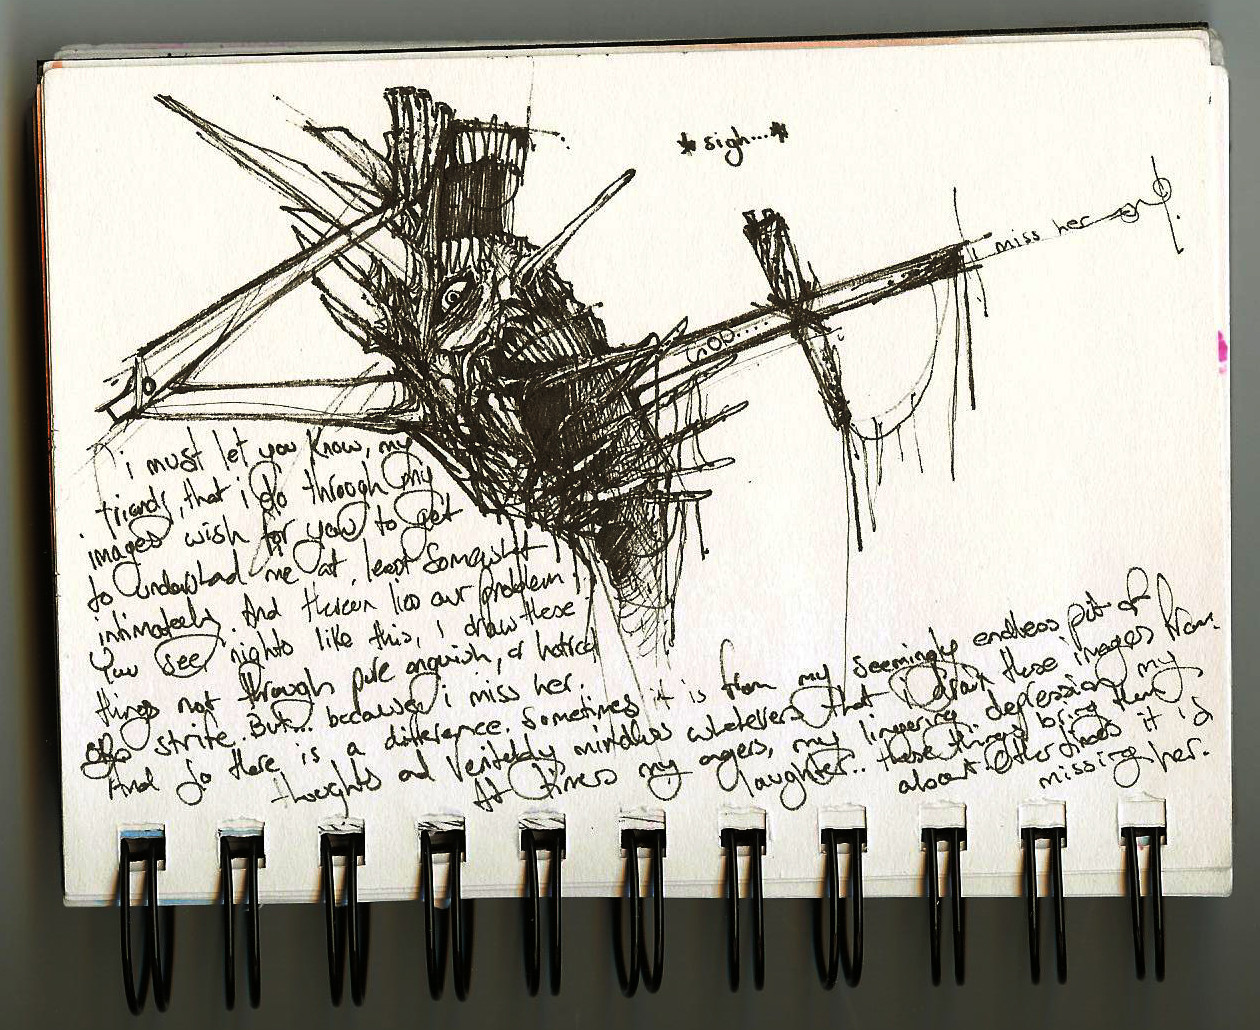 *sigh...*
i miss her
i must let you know, my
friends, that i do through my
images wish for you to get
to understand me at least somewhat
intimately. And therein lies our problem!
You see, nights like this, i draw these
things not through pure anguish, or hatred
strife. But... because i miss her.
And so there is a difference. Sometimes it is from my seemingly endless pit of
thoughts and mindless that i drain these images from.
At times my angers, my lingering depression, my
laughter.. these things bring them
about. Other times it is
missing her.